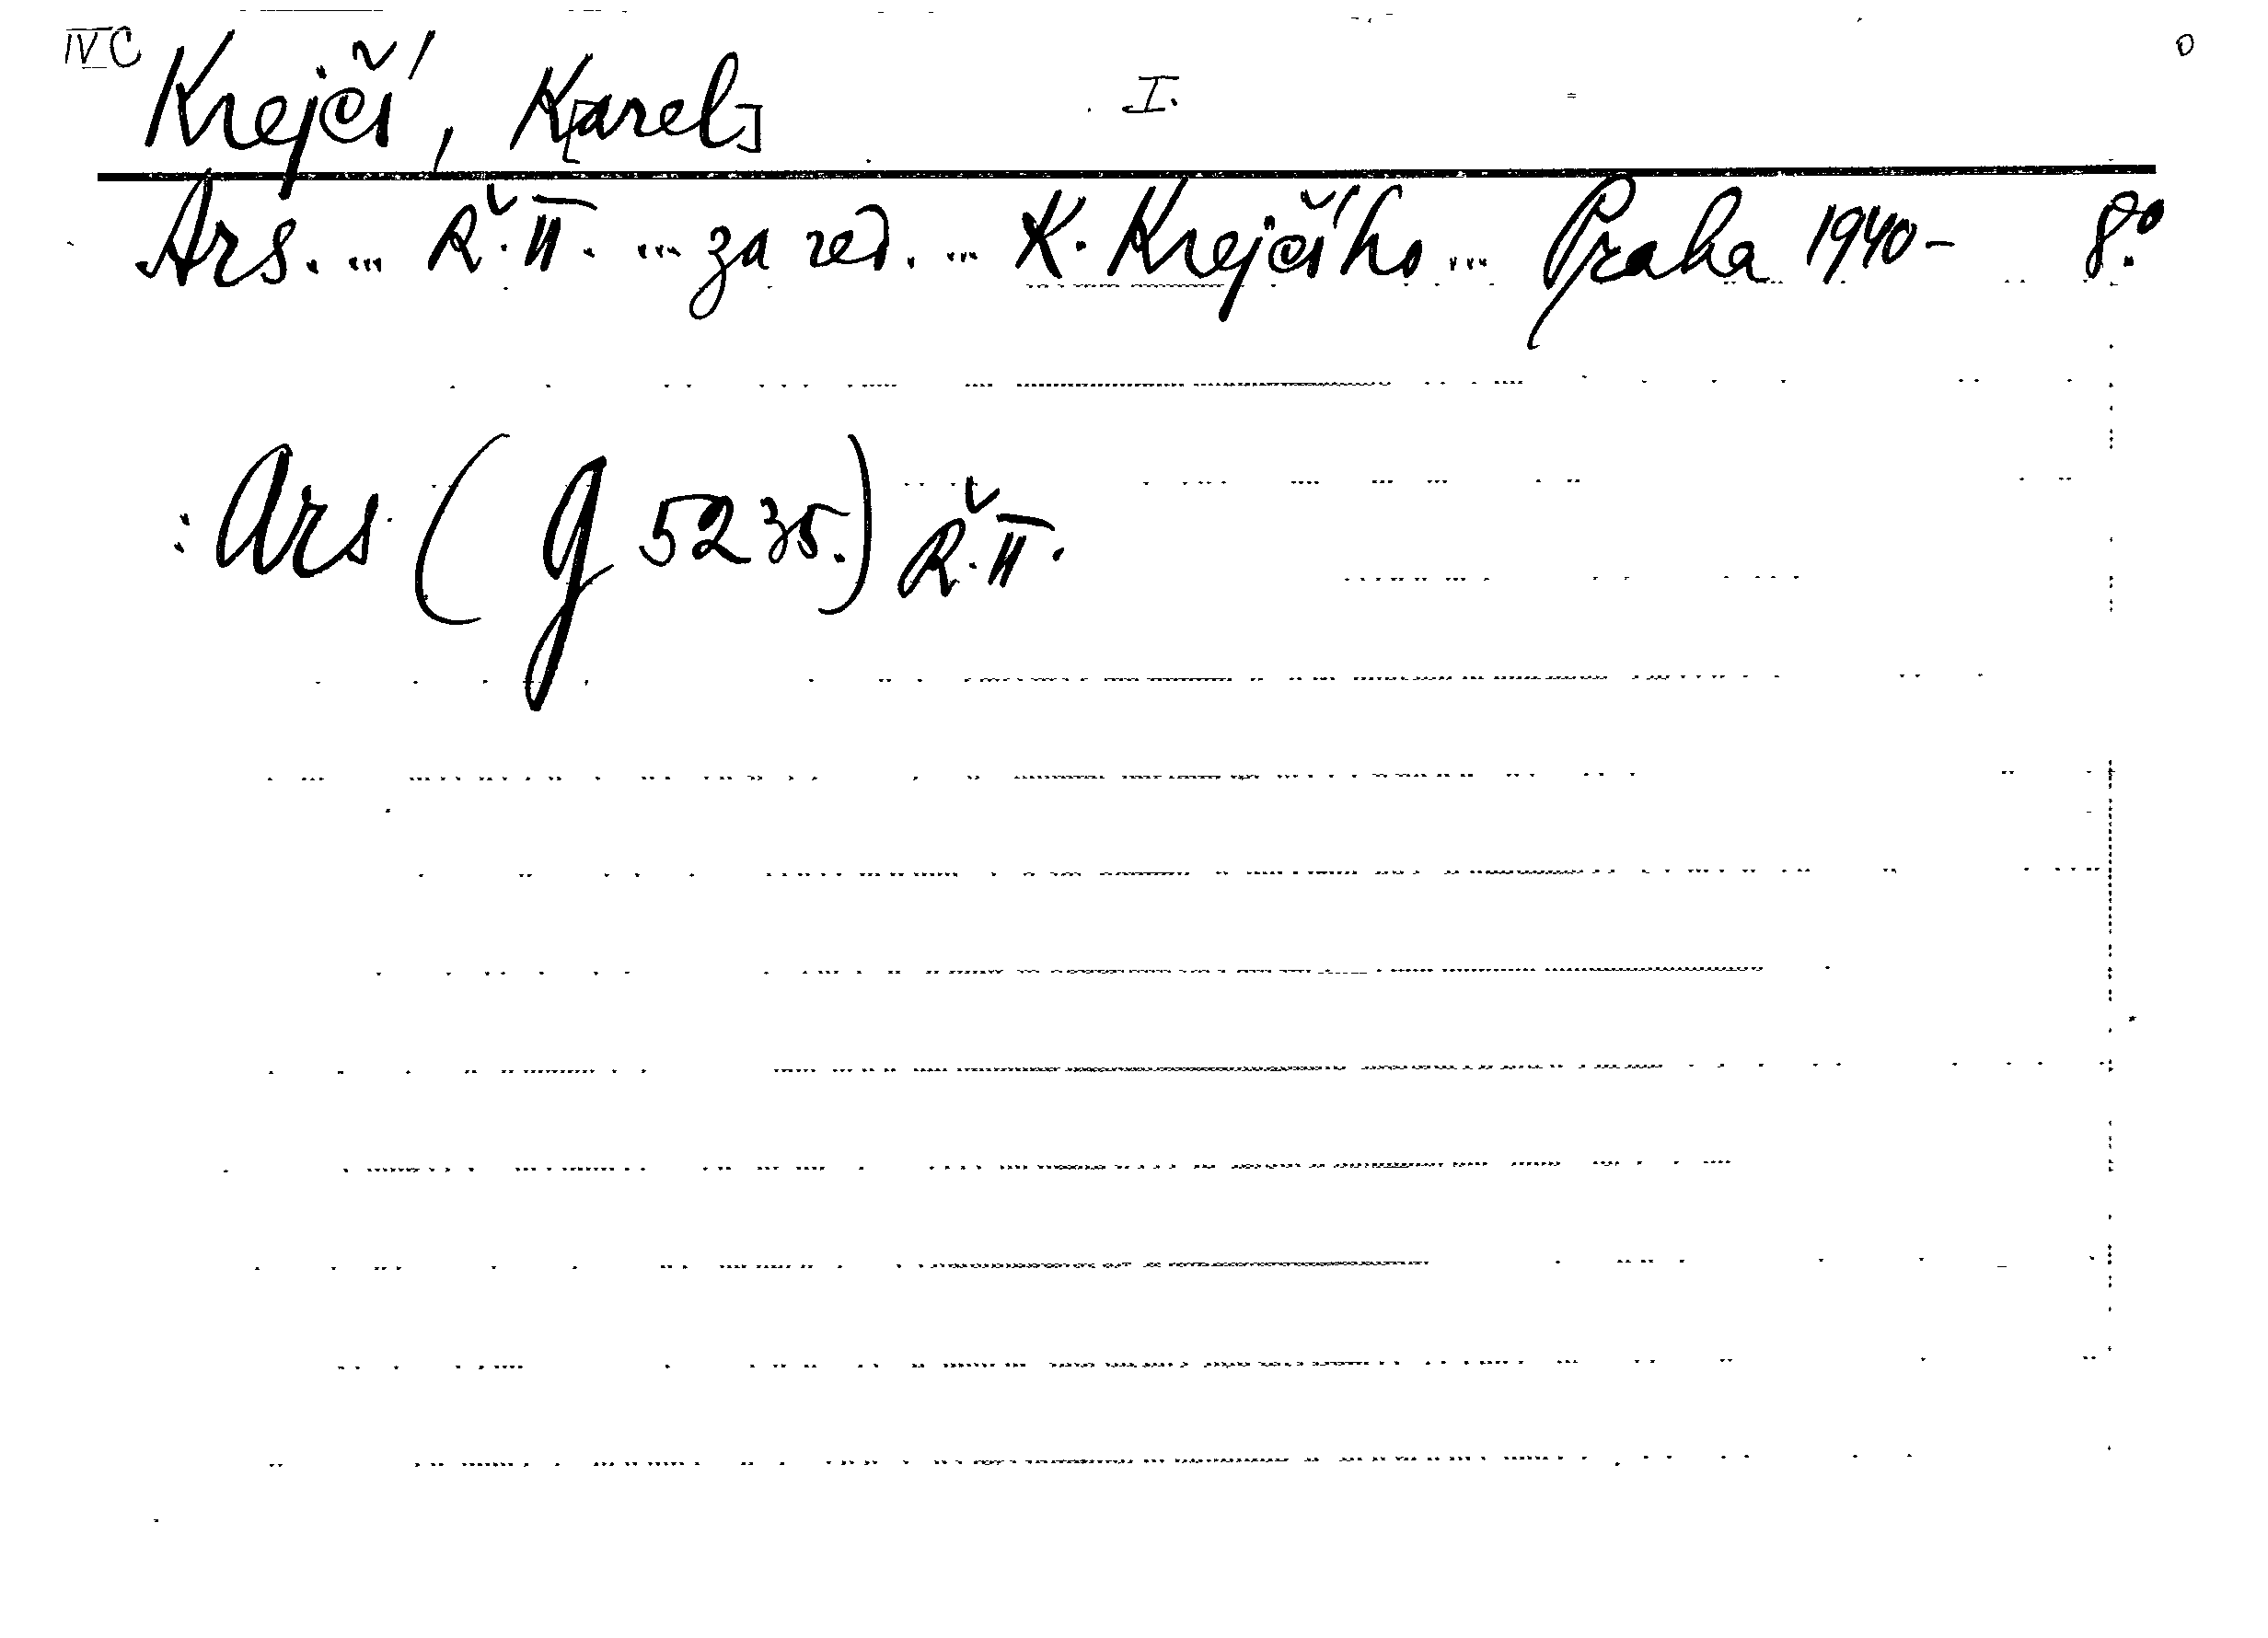 IV C
Krejčí, K[arel] I. o
Ars. ... Ř. II. ... za red. ... K. Krejčího ... Praha 1940- 8°.
: Ars (g 5235.) Ř. II.